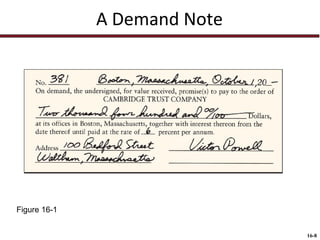 A Demand Note
No. 381 Boston, Massachusetts, October 1, 20 —
On demand, the undersigned, for value received, promise(s) to pay to the order of
CAMBRIDGE TRUST COMPANY
Two thousand four hundred and 00/100 Dollars,
at its offices in Boston, Massachusetts, together with interest thereon from the
date thereof until paid at the rate of 6 percent per annum.
Address 100 Bedford Street Victor Powell
Waltham, Massachusetts
Figure 16-1
16-8